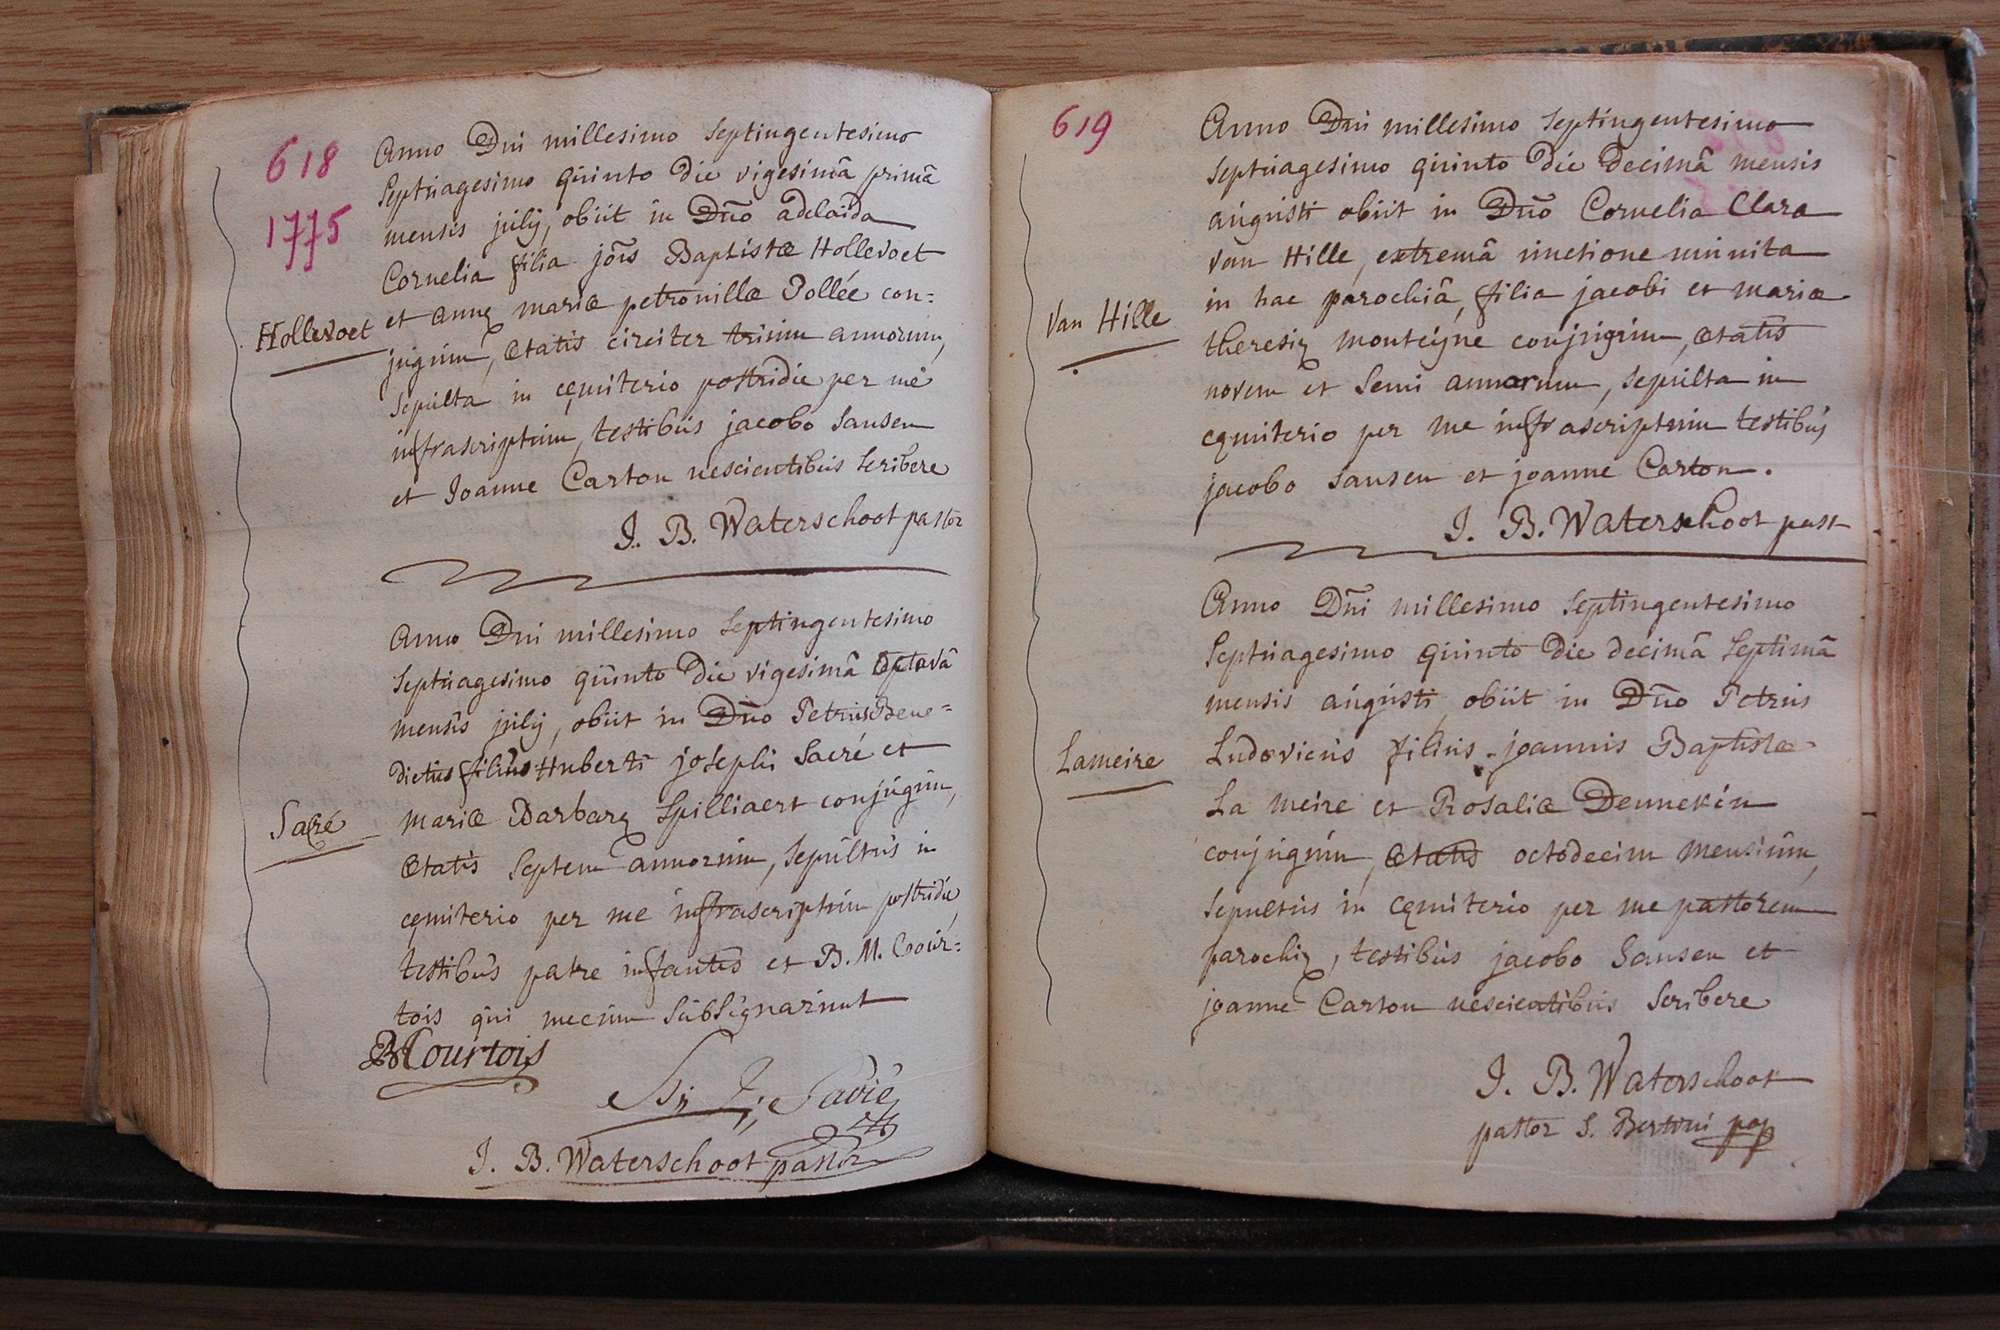 618
1775
Anno Dni millesimo septingentesimo
septuagesimo quinto die vigesimâ primâ
mensis julij, obiit in Dno adelaida
Cornelia filia jois Baptistæ Hollevoet
et annę mariæ petronillæ Pollée con=
Hollevoet
jugum, ætatis circiter trium annorum,
sepulta in cęmiterio postridie per me
infrascriptum, testibus jacobo Sansen
et Joanne Carton nescientibus scribere
J. B. Waterschoot pastor
Anno Dni millesimo septingentesimo
septuagesimo quinto die vigesimâ octavâ
mensis julij, obiit in Dno Petrus Bene=
dictus filius Huberti josephi Sacré et
Sacré
mariæ Barbarę Spilliaert conjugum,
ætatis septem annorum, sepultus in
cęmiterio per me infrascriptum postridie,
testibus patre infantis et B. M. Cour=
tois qui mecum subsignarunt
BMCourtois
J. B. Waterschoot pastor
619
Anno Dni millesimo septingentesimo
septuagesimo quinto die decimâ mensis
augusti obiit in Dno Cornelia Clara
van Hille, extremâ unctione munita
in hac parochiâ, filia jacobi et mariæ
Van Hille
theresię monteijne conjugum, ætatis
novem et semi annorum, sepulta in
cęmiterio per me infrascriptum testibus
jacobo Sansen et joanne Carton.
J. B. Waterschoot past
Anno Dni millesimo septingentesimo
septuagesimo quinto die decimâ septimâ
mensis augusti, obiit in Dno Petrus
Ludovicus filius joannis Baptistæ
Lameire
La meire et Rosaliæ Dennekin
conjugum, ætatis octodecim mensium,
sepultus in cęmiterio per me pastorem
parochię, testibus jacobo Sansen et
joanne Carton nescientibus scribere
J. B. Waterschoot
pastor S. Bertini pop